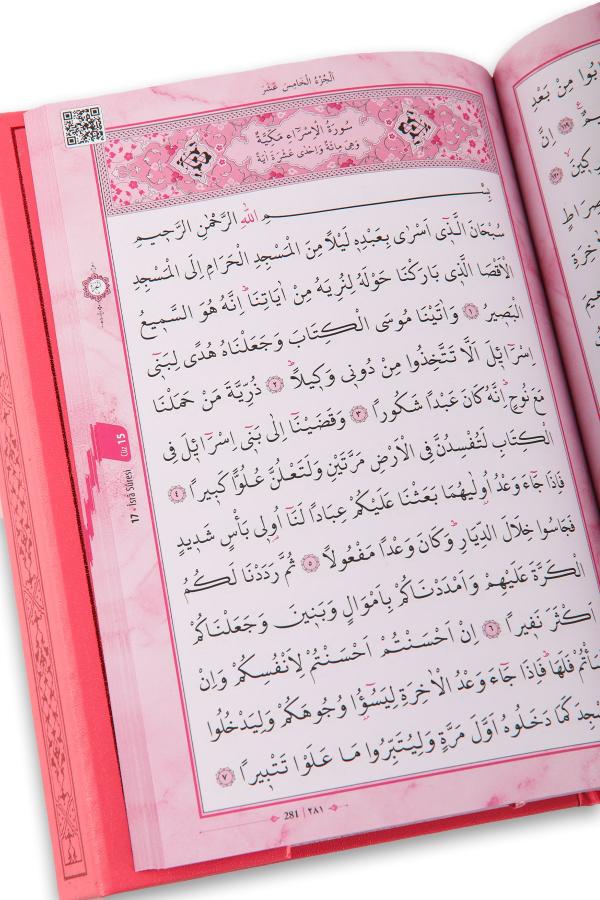 اَلْجُزْءُ الْخَامِسَ عَشَرَ
سُورَةُ الْاِسْرَٓاءِ مَكِّيَّةٌ
وَهِيَ مِائَةٌ وَاِحْدٰى عَشْرَةَ اٰيَةً
بِسْــــــمِ اللّٰهِ الرَّحْمٰنِ الرَّحِيمِ
سُبْحَانَ الَّذ۪ٓي اَسْرٰى بِعَبْدِه۪ لَيْلًا مِنَ الْمَسْجِدِ الْحَرَامِ اِلَى الْمَسْجِدِ
الْاَقْصَا الَّذ۪ي بَارَكْنَا حَوْلَهُ لِنُرِيَهُ مِنْ اٰيَاتِنَاۜ اِنَّهُ هُوَ السَّم۪يعُ
الْبَص۪يرُ ﴿١﴾ وَاٰتَيْنَا مُوسَى الْكِتَابَ وَجَعَلْنَاهُ هُدًى لِبَن۪ٓي
اِسْرَٓائ۪لَ اَلَّا تَتَّخِذُوا مِنْ دُون۪ي وَك۪يلًاۜ ﴿٢﴾ ذُرِّيَّةَ مَنْ حَمَلْنَا
مَعَ نُوحٍۜ اِنَّهُ كَانَ عَبْدًا شَكُورًا ﴿٣﴾ وَقَضَيْنَٓا اِلٰى بَن۪ٓي اِسْرَٓائ۪لَ فِي
الْكِتَابِ لَتُفْسِدُنَّ فِي الْاَرْضِ مَرَّتَيْنِ وَلَتَعْلُنَّ عُلُوًّا كَب۪يرًا ﴿٤﴾
فَاِذَا جَٓاءَ وَعْدُ اُو۫لٰيهُمَا بَعَثْنَا عَلَيْكُمْ عِبَادًا لَنَٓا اُو۬ل۪ي بَأْسٍ شَد۪يدٍ
فَجَاسُوا خِلَالَ الدِّيَارِۜ وَكَانَ وَعْدًا مَفْعُولًا ﴿٥﴾ ثُمَّ رَدَدْنَا لَكُمُ
الْكَرَّةَ عَلَيْهِمْ وَاَمْدَدْنَاكُمْ بِاَمْوَالٍ وَبَن۪ينَ وَجَعَلْنَاكُمْ
اَكْثَرَ نَف۪يرًا ﴿٦﴾ اِنْ اَحْسَنْتُمْ اَحْسَنْتُمْ لِاَنْفُسِكُمْ وَاِنْ
فَلَهَاۜ فَاِذَا جَٓاءَ وَعْدُ الْاٰخِرَةِ لِيَسُٓؤُ۫ا وُجُوهَكُمْ وَلِيَدْخُلُوا
كَمَا دَخَلُوهُ اَوَّلَ مَرَّةٍ وَلِيُتَبِّرُوا مَا عَلَوْا تَتْب۪يرًا ﴿٧﴾
281 | ٢٨١
Cüz 15
17 - İsrâ Sûresi
مِنْ بَعْدِ
اِنَّ